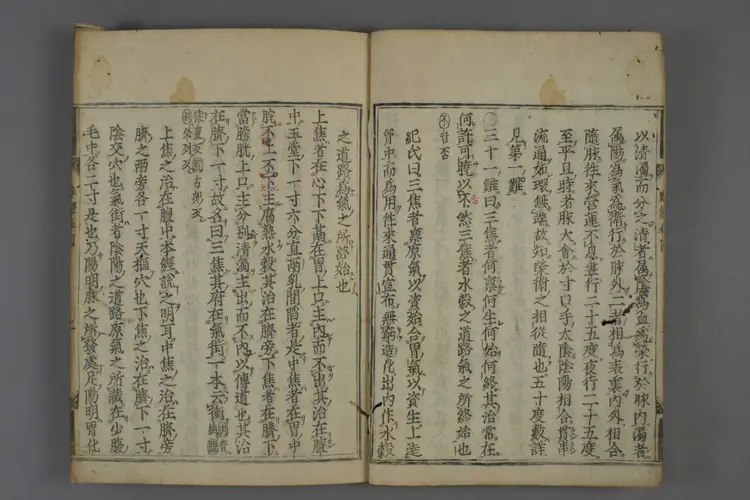 以清濁而分之清者屬陰爲血爲榮行於脉内濁者
屬陽爲氣爲衛行於脉外二者相爲表裏内外相合
隨脉徃來營運不息晝行二十五度夜行二十五度
至平旦時者脉大會於寸口手太陰陰陽相合貫串
流通如環無端故知榮衛之相從隨也五十度數詳
見第一難
○三十一難曰三焦者何禀何生何始何終其治常在
何許可曉以不然三焦者水穀之道路氣之所終始也
不音否
紀氏曰三焦者禀原氣以資始合胃氣以資生上達
胷中而爲用徃來通貫宣布無窮造化出内作水穀
之道路爲氣之所終始也
上焦者在心下下膈在胃上口主内而不出其治在膻
中玉堂下一寸六分直兩乳間陷者是中焦者在胃中
脘不上不下主腐熟水穀其治在臍旁下焦者在臍下
當膀胱上口主分別清濁主出而不内以傳道也其治
在臍下一寸故名曰三焦其府在氣街一本云衝
上焦之治在膻中本經説之明耳中焦之治在臍旁
臍之兩旁各一寸天樞穴也下焦之治在臍下一寸
陰交穴也氣街者陰陽之道路原氣之所藏在少腹
毛中各二寸是也乃陽明脉之所發處足陽明胃化